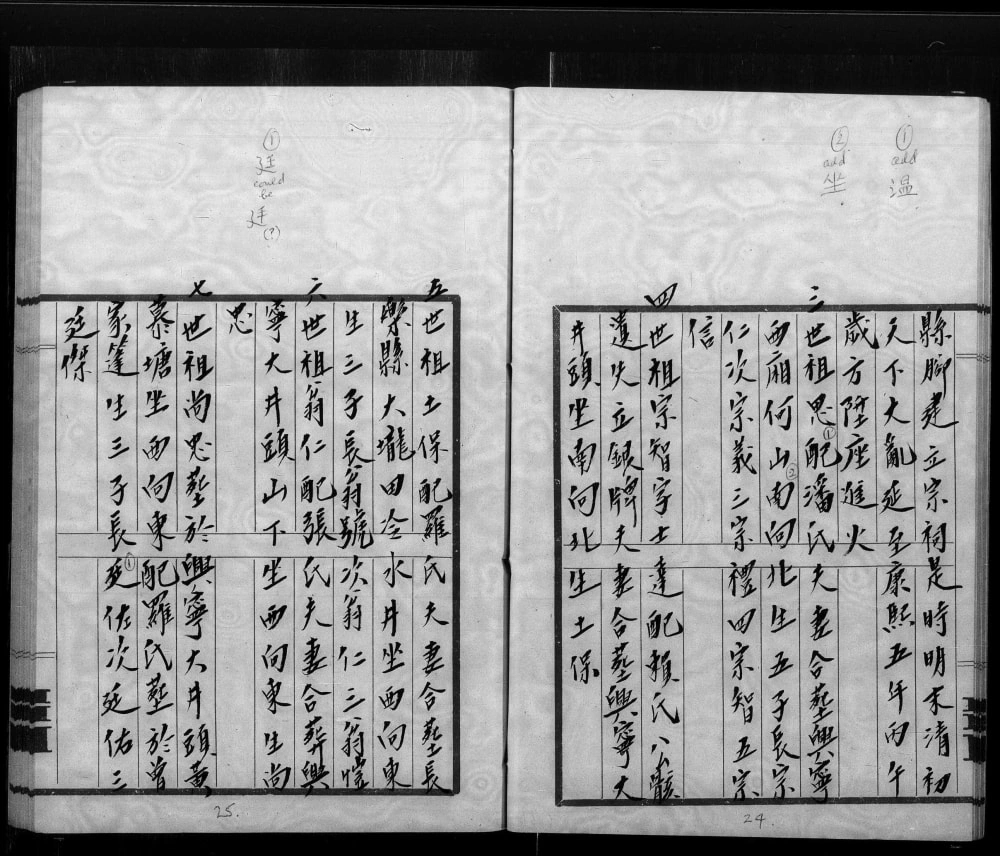 ① add 温
② add 坐
縣腳建立宗祠是時明末清初
天下大亂延至康熙五年丙午
歲方陞座進火
三世祖思①配潘氏夫妻合塟興寧
西廂何山②南向北生五子長宗
仁次宗義三宗禮四宗智五宗
信
四世祖宗智字士達配賴氏公骸
遺失立銀牌夫妻合塟興寧大
井頭坐南向北生士保
24
① 廷 could be 廷 (?)
五世祖士保配羅氏夫妻合塟長
樂縣大壠田冷水井坐西向東
生三子長翁號次翁仁三翁愷
六世祖翁仁配張氏夫妻合葬興
寧大井頭山下坐西向東生尚
忠
七世祖尚忠塟於興寧大井頭黃
慕塘坐西向東配羅氏塟於曾
家篷生三子長廷①佐次廷佑三
廷傑
25.